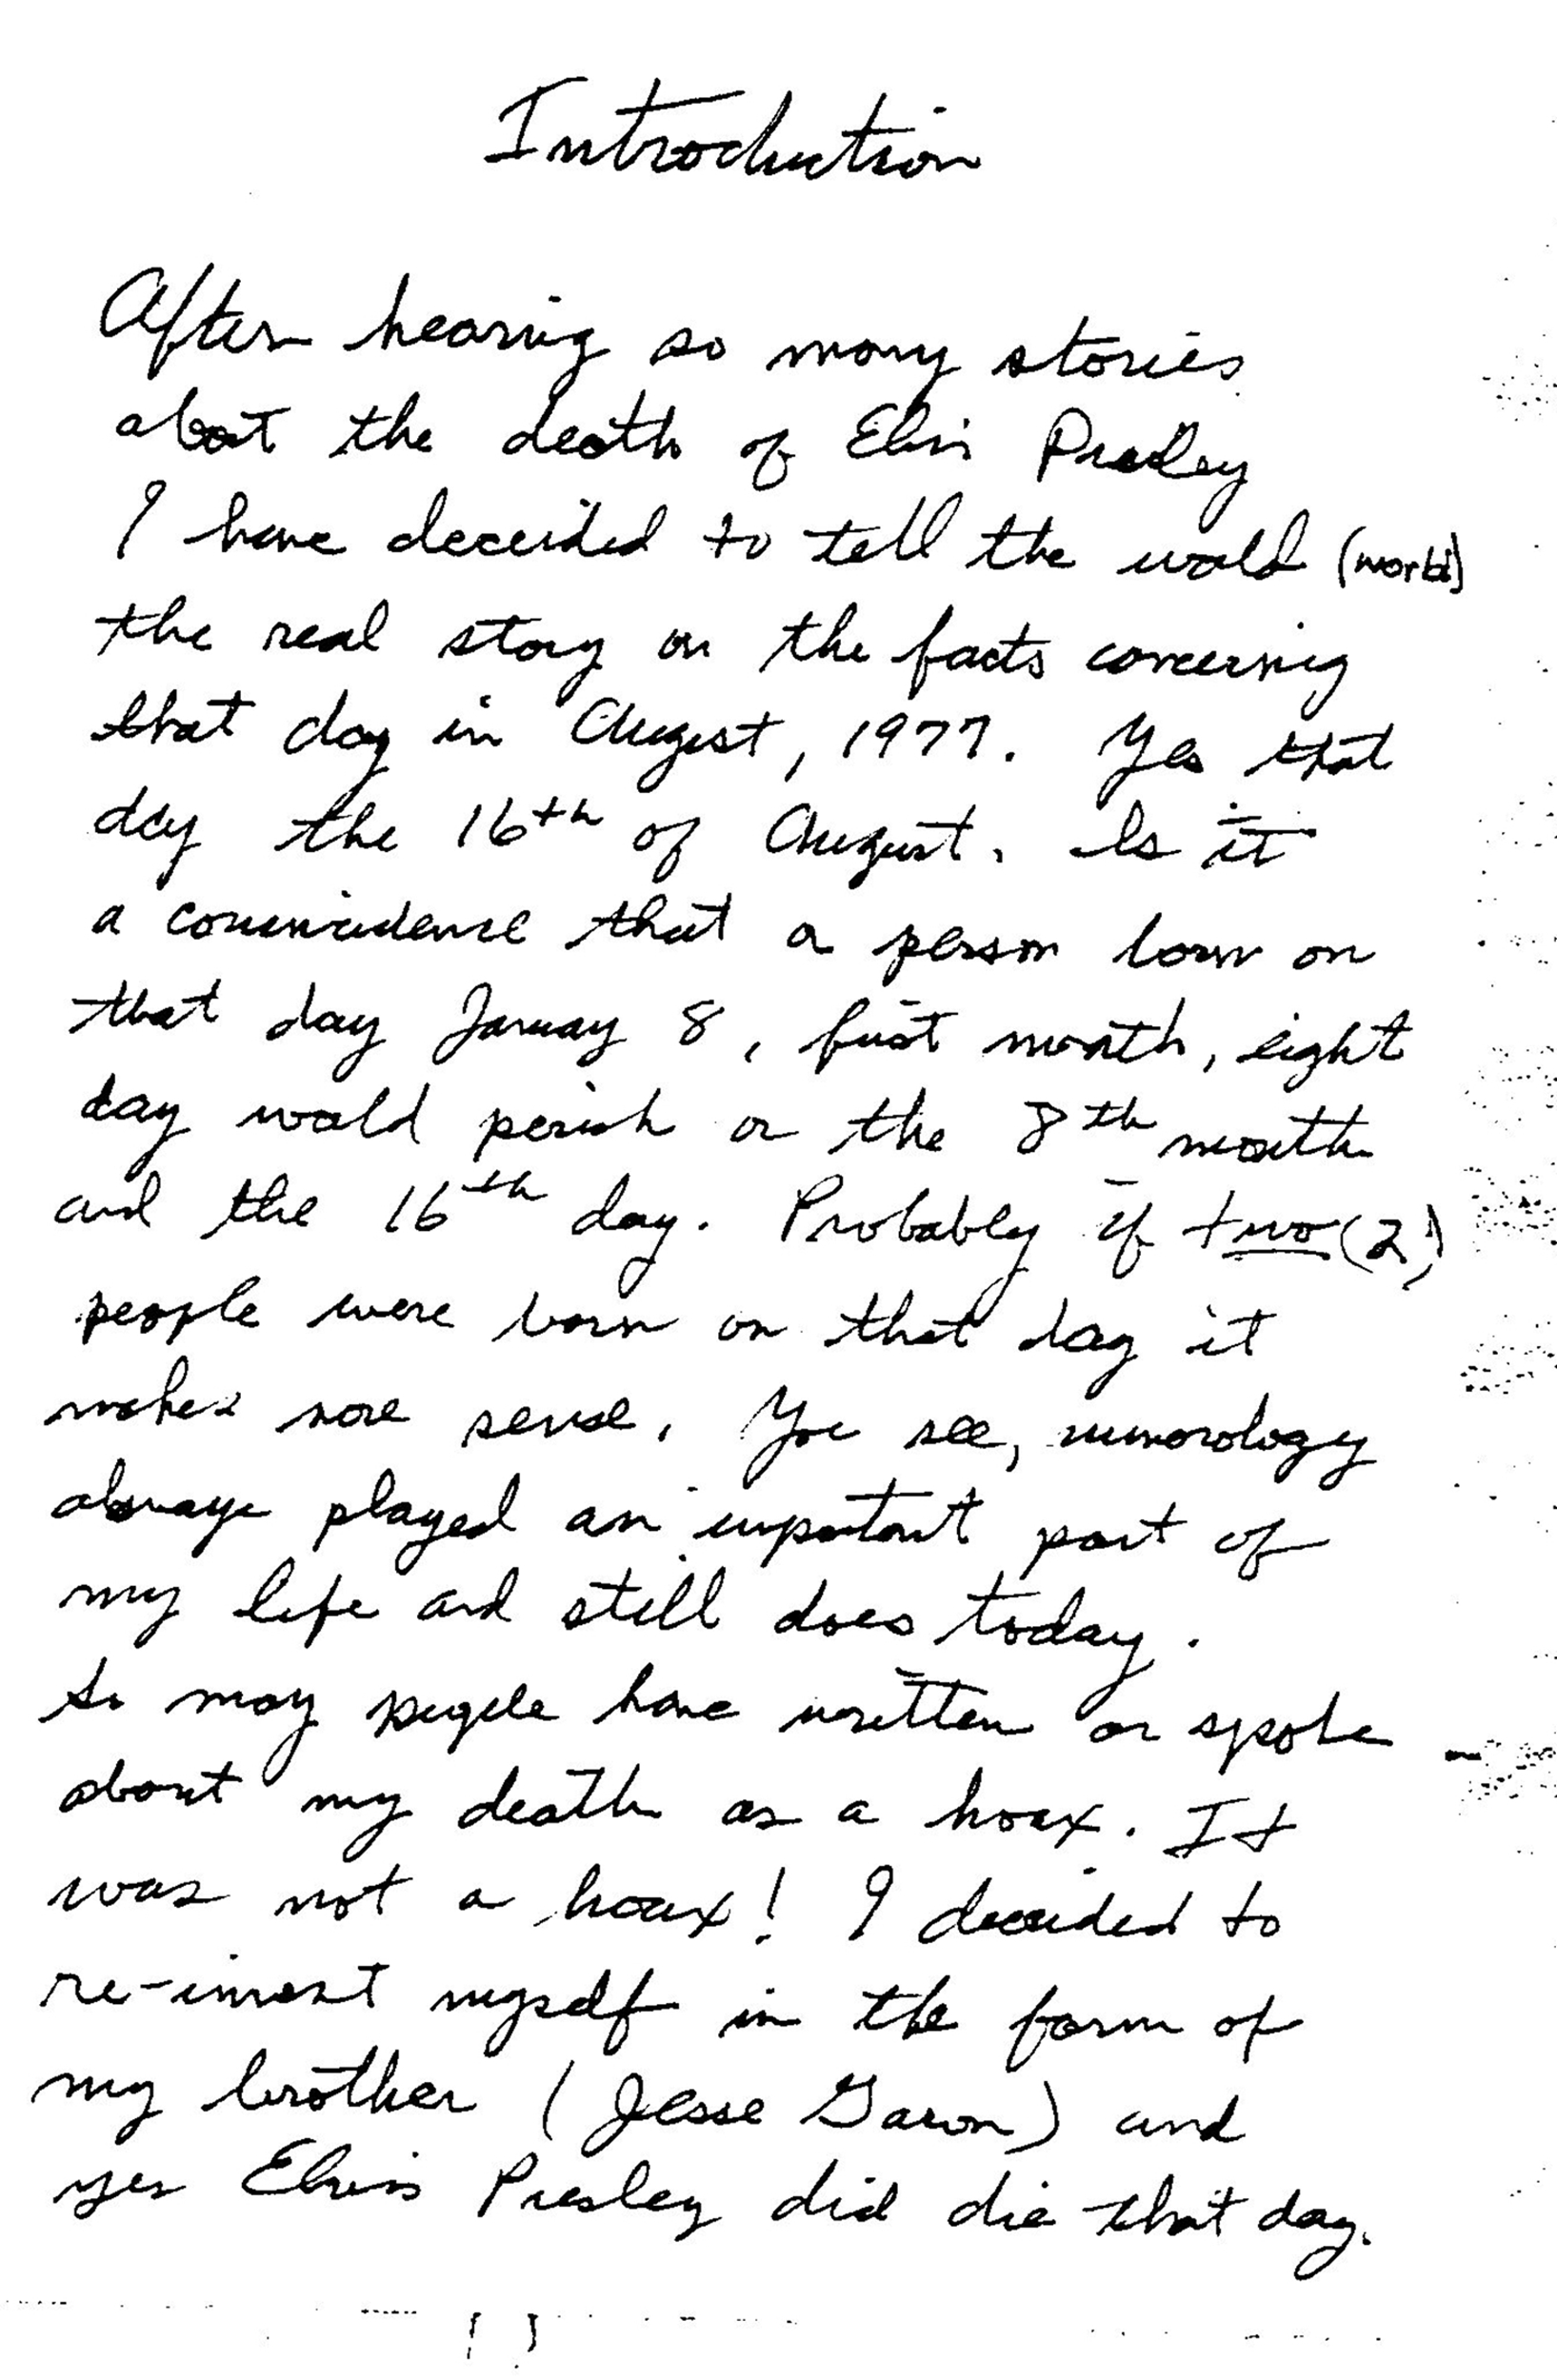 Introduction
After hearing so many stories
about the death of Elvis Presley
I have deceided to tell the wold (world)
the real story on the facts concerning
that day in August, 1977. Yes that
day the 16th of August. Is it
a conincidense that a person born on
that day January 8, first month, eight
day wold perish on the 8th month
and the 16th day. Probably if two (2)
people were born on that day it
makes more sense. You see, numorology
always played an important part of
my life and still does today.
So may people have written or spoke
about my death as a hoax. It
was not a hoax! I decided to
re-invent myself in the form of
my brother (Jesse Garon) and
yes Elvis Presley did die that day.